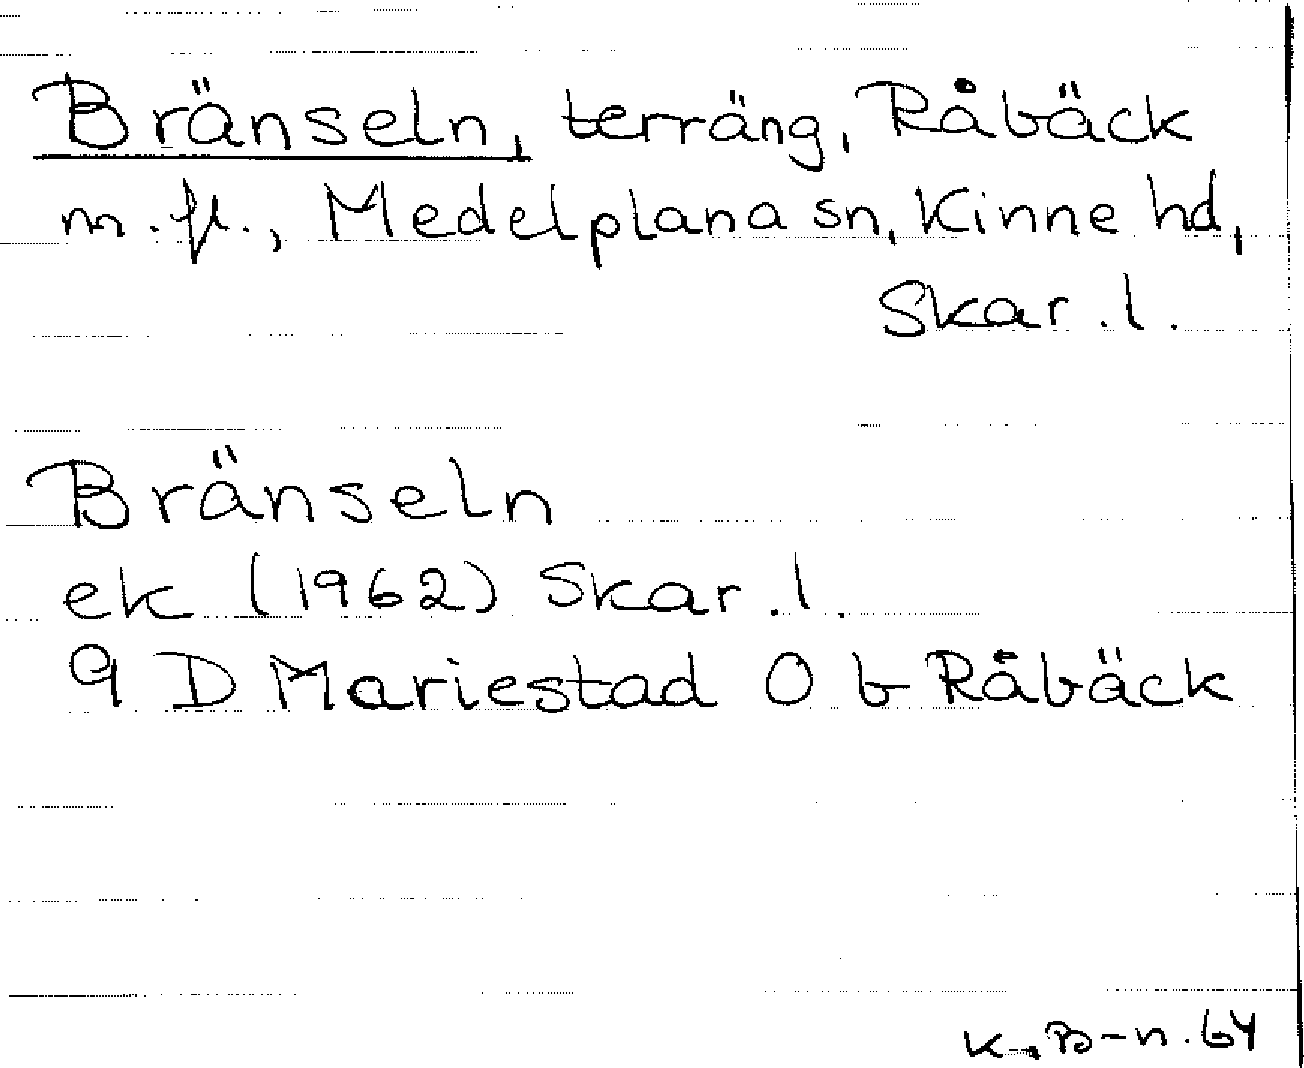 Bränseln, terräng, Råbäck
m.fl., Medelplana sn, Kinne hd,
Skar.l.
Bränseln
ek (1962) Skar.l.
9 D Mariestad O b Råbäck
K. B-n. 64